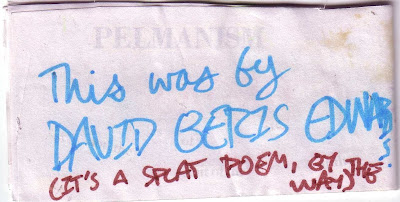 PELMANISM
This was by
DAVID BERIS EDWARDS
(IT'S A SPLAT POEM, BY THE
WAY)